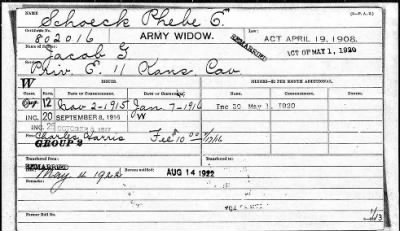 Schoeck Phebe E.
Certificate No. 802016 ARMY WIDOW. REMARRIED ACT APRIL 19, 1908.
ACT OF MAY 1, 1920
Name of Soldier: Jacob G
Service: Priv. E. 11 Kans. Cav
W
RATE DATE OF COMMENCEMENT. DATE OF
12 Nov 2-1915 Jan 7-1916 Inc 30 May 1, 1920
INC. 20 SEPTEMBER 8, 1916 W
INC. 25 OCTOBER 6, 1917
Charles Harris Fee $10.00
GROUP 2
Transferred from
REMARRIED
May 4 1922 Bureau notified AUG 14 1922
Remarks:
Former Roll No.